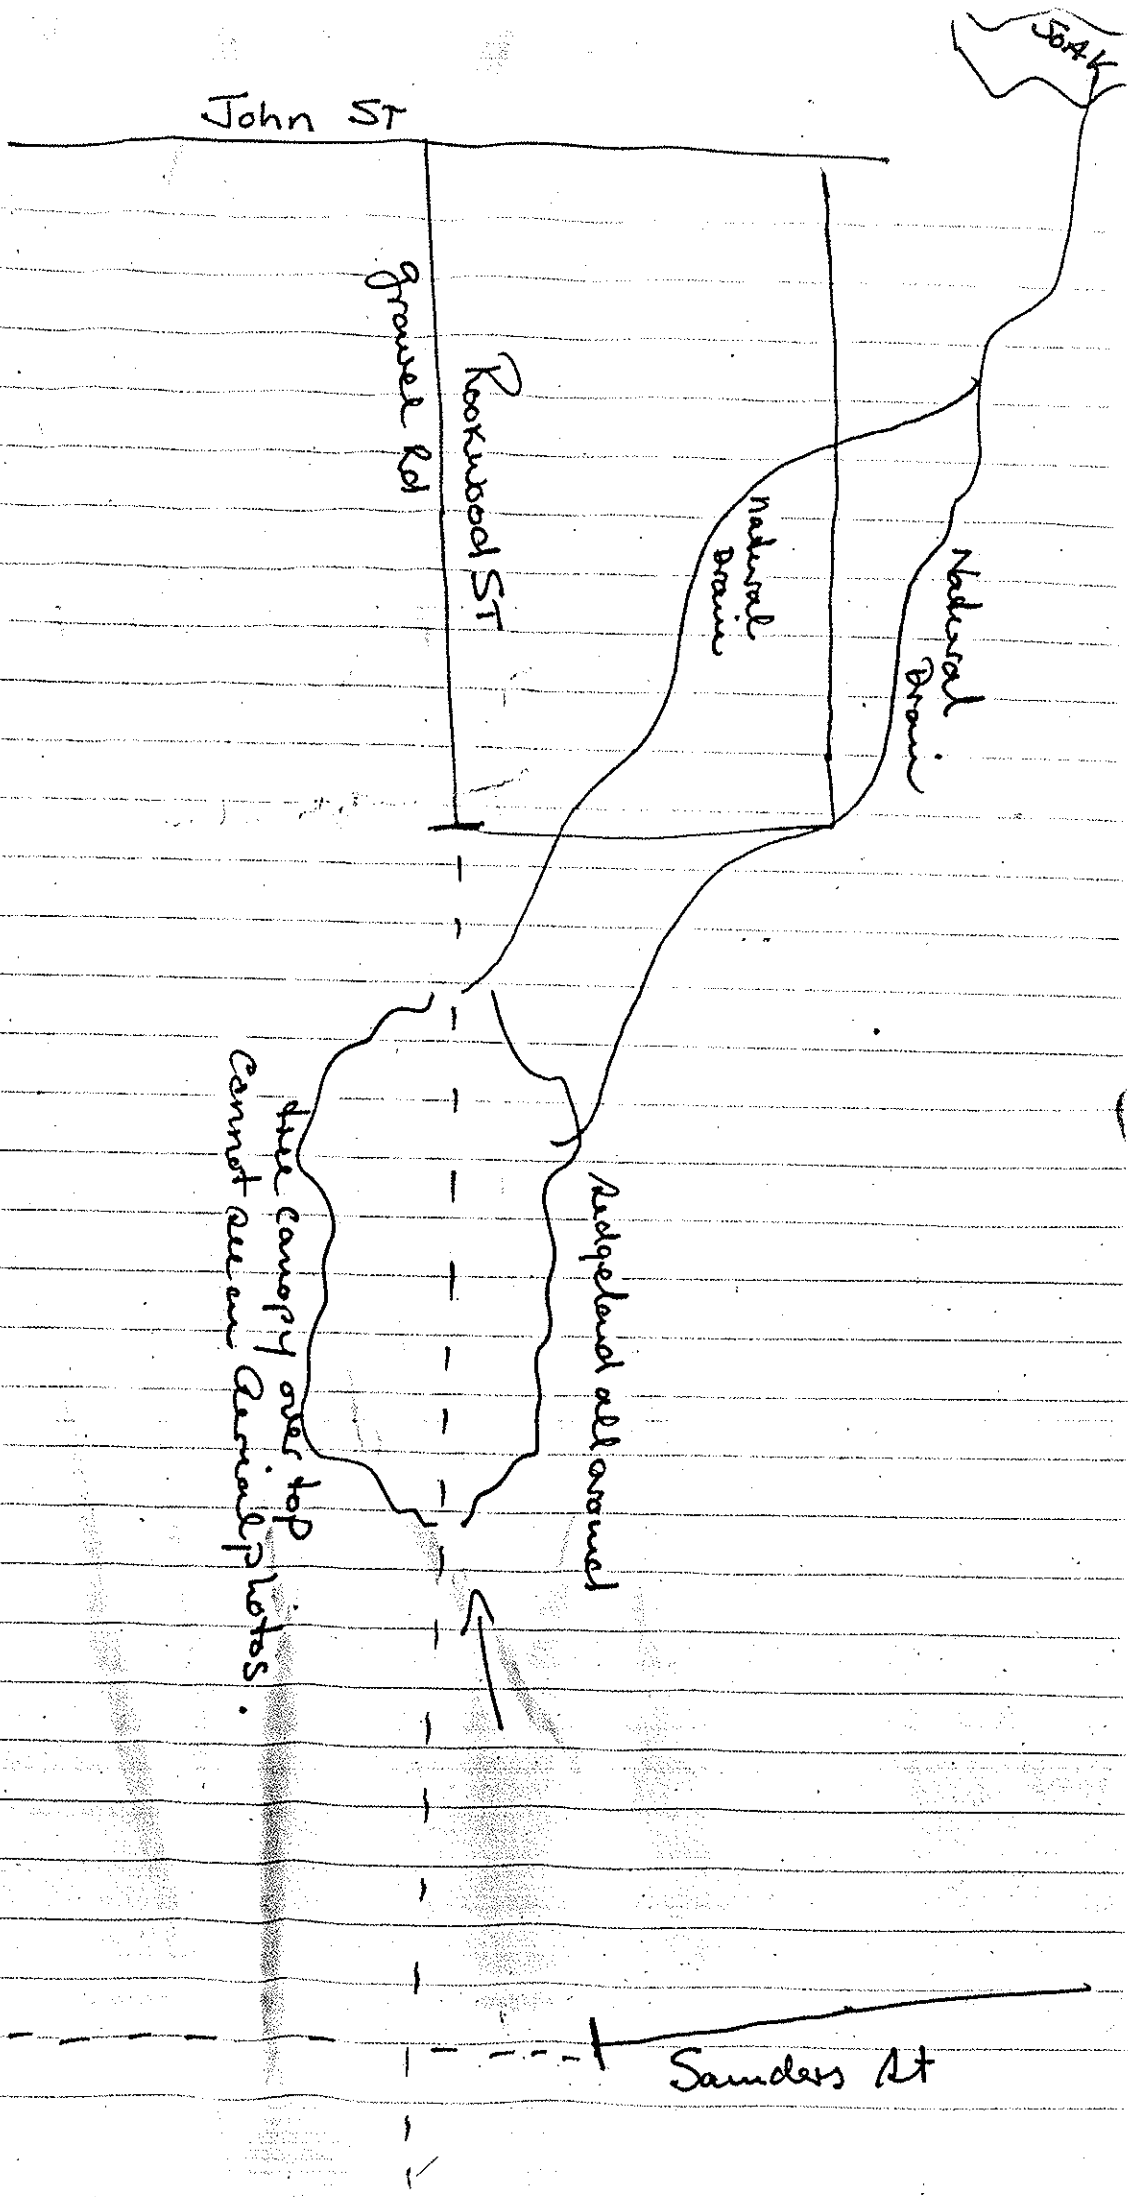 SOAK
John ST
Rookwood ST
gravel Rd
Natural
Drain
Natural
Drain
Sedgeland all around
tree canopy over top
cannot see in Aerial photos.
Saunders St